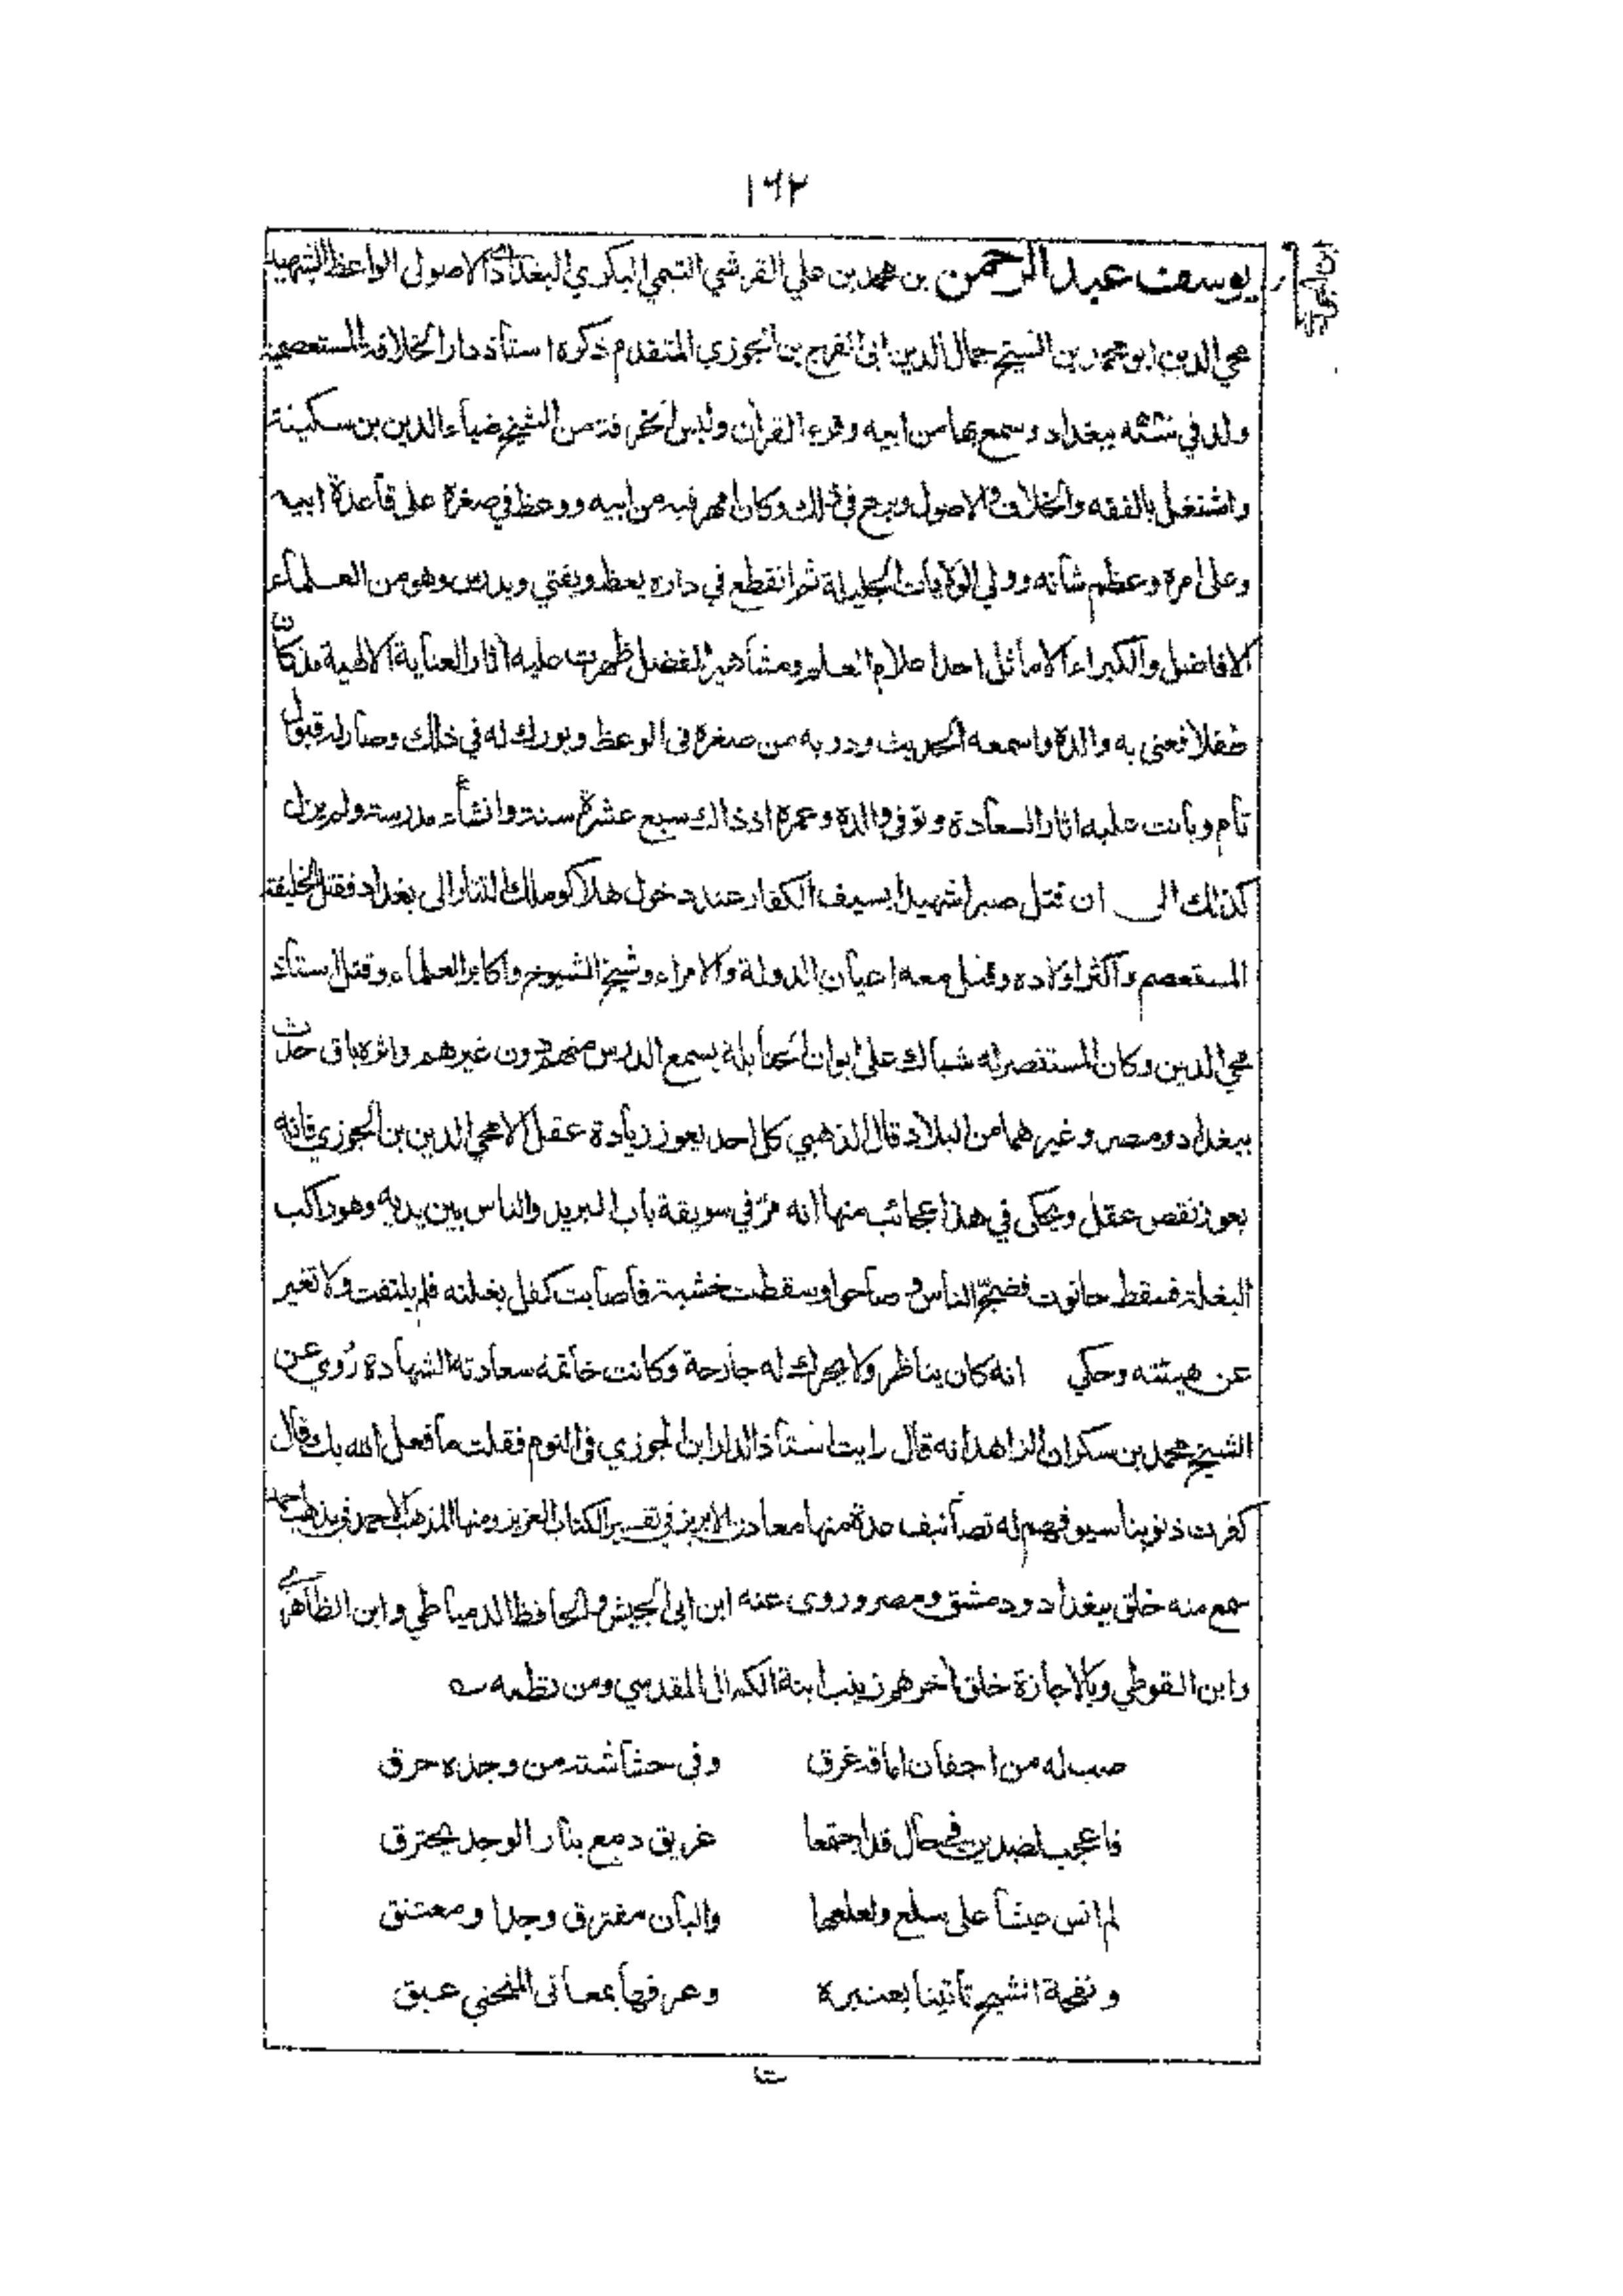 ١٦٢
يوسف عبد الرحمن بن محمد بن علي القرشي التيمي البكري البغدادي الاصولي الواعظ الشهيد
محي الدين ابو محمد بن الشيخ جمال الدين ابى الفرج بن الجوزي المتقدم ذكره استاذ دار الخلافة المستعصمية
ولد في سنة ببغداد وسمع بها من ابيه وقرء القران ولبس الخرقة من الشيخ ضياء الدين بن سكينة
واشتغل بالفقه والخلاف والاصول وبرع في ذلك وكان امهر فيه من ابيه ووعظ في صغره على قاعدة ابيه
وعلى امره وعظم شأنه وولي الولايات الجليلة ثم انقطع في داره يعظ ويفتي ويدرس وهو من العلماء
الافاضل والكبراء الاماثل احد اعلام العلم ومشاهير الفضل ظهرت عليه اثار العناية الالهية مذ كان
طفلا فعنى به والده واسمعه الحديث ودربه من صغره في الوعظ وبورك له في ذلك وصار له قبول
تام وبانت عليه اثار السعادة وتوفي والده وعمره اذ ذاك سبع عشرة سنة وانشاء مدرسة ولم يزل
كذلك الى ان قتل صبرا شهيدا بسيف الكفار عند دخول هلاكو ملك التتار الى بغداد فقتل الخليفة
المستعصم واكثر اولاده وقتل معه اعيان الدولة والامراء وشيخ الشيوخ واكابر العلماء وقتل استاذ
محي الدين وكان المستنصر له شباك على ايوان الحنابلة يسمع الدرس منهم دون غيرهم واثره باق حدث
ببغداد ومصر وغيرهما من البلاد قال الذهبي كل احد يعوز زيادة عقل الا محي الدين بن الجوزي فانه
يعوز نقص عقل ويحكى في هذا عجائب منها انه مرّ في سويقة باب البريد والناس بين يديه وهو راكب
البغلة فسقط حانوت فضجّ الناس وصاحوا وسقطت خشبة فأصابت كفل بغلته فلم يلتفت ولا تغير
عن هيئته وحكي انه كان يناظر ولا يحرك له جارحة وكانت خاتمة سعادته الشهادة رُوي عن
الشيخ محمد بن سكران الزاهد انه قال رايت استاذ الدار ابن الجوزي في النوم فقلت ما فعل الله بك قال
كفرت ذنوبنا سيوفهم له تصانيف عدة منها معادن الابريز في تفسير الكتاب العزيز ومنها المذهب الاحمد في مذهب احمد
سمع منه خلق ببغداد ودمشق ومصر وروى عنه ابن ابي الجيش والحافظ الدمياطي وابن الظاهري
وابن القوطي وبالاجازة خلق اخرهم زينب ابنة الكمال المقدسي ومن نظمه
صب له من اجفان اماقه غرق وفي حشاشته من وجده حرق
فاعجب لضدين في حال قد اجتمعا غريق دمع بنار الوجد يحترق
لم انس عيشا على سلع ولعلعها والبان مفترق وجدا ومعتنق
ونفحة الشيح تأتينا بعنبره وعرفها بمعاني المنحني عبق